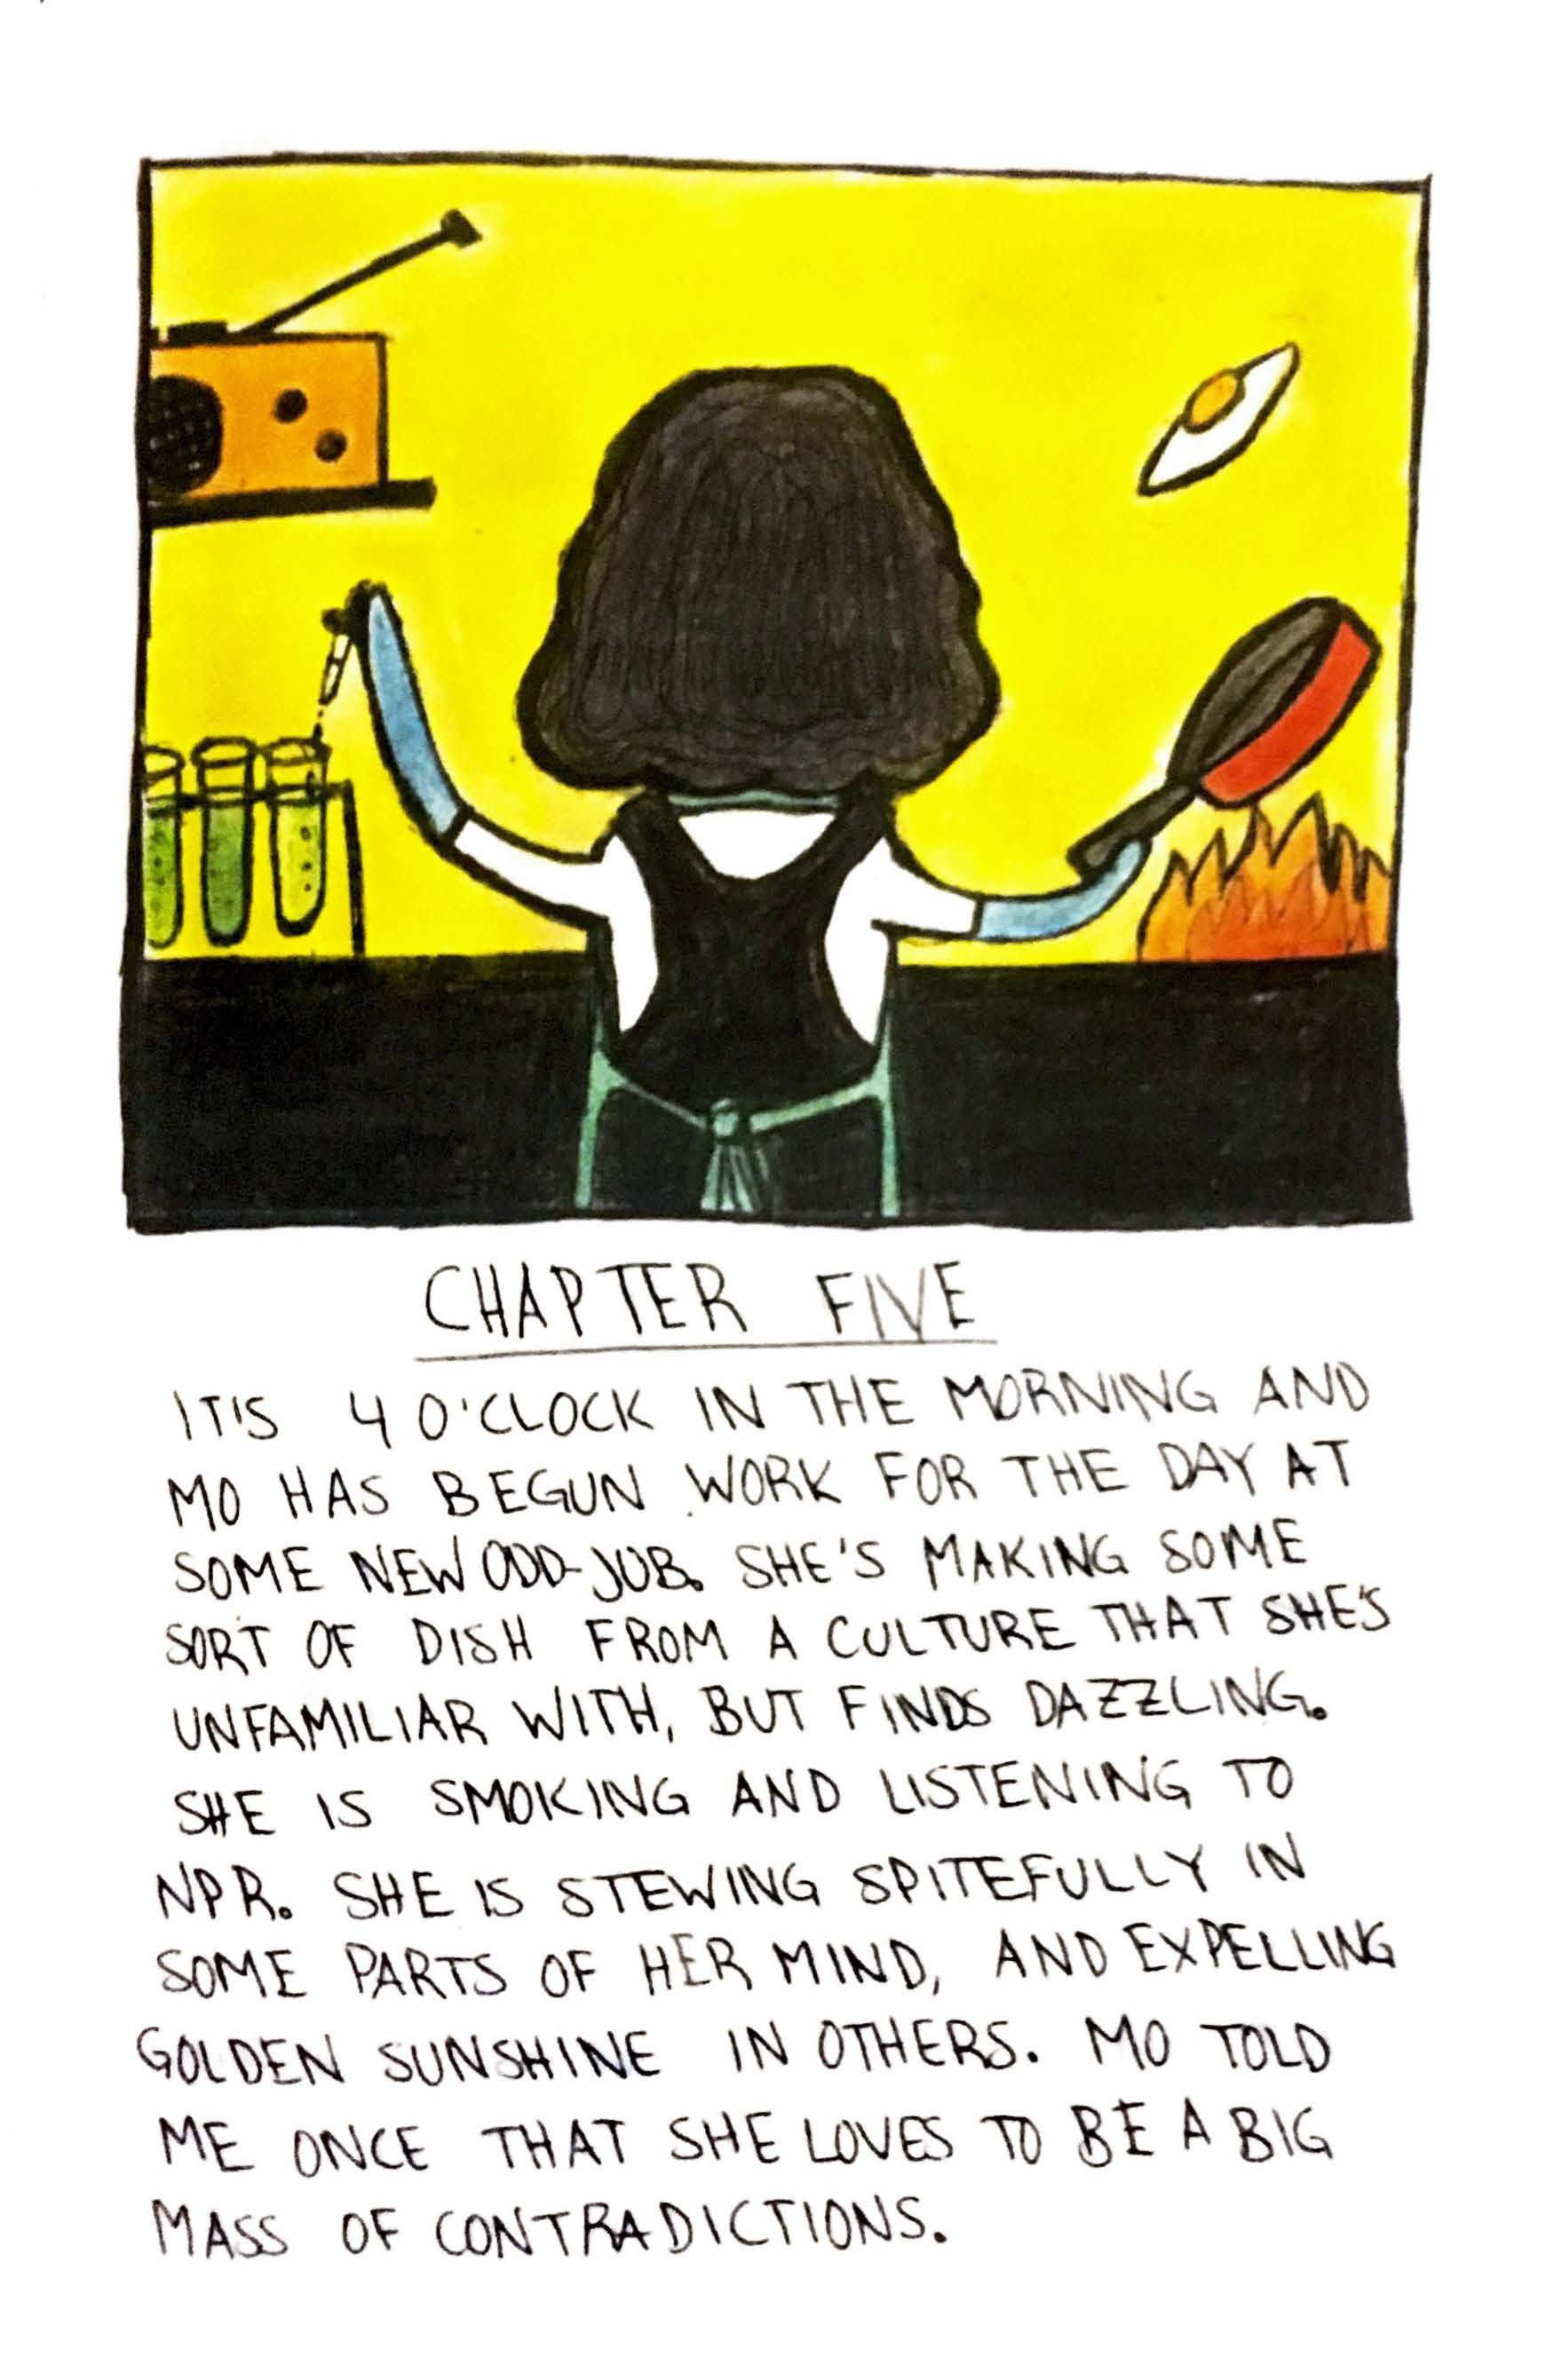 CHAPTER FIVE
IT'S 4 O'CLOCK IN THE MORNING AND
MO HAS BEGUN WORK FOR THE DAY AT
SOME NEW ODD-JOB. SHE'S MAKING SOME
SORT OF DISH FROM A CULTURE THAT SHE'S
UNFAMILIAR WITH, BUT FINDS DAZZLING.
SHE IS SMOKING AND LISTENING TO
NPR. SHE IS STEWING SPITEFULLY IN
SOME PARTS OF HER MIND, AND EXPELLING
GOLDEN SUNSHINE IN OTHERS. MO TOLD
ME ONCE THAT SHE LOVES TO BE A BIG
MASS OF CONTRADICTIONS.